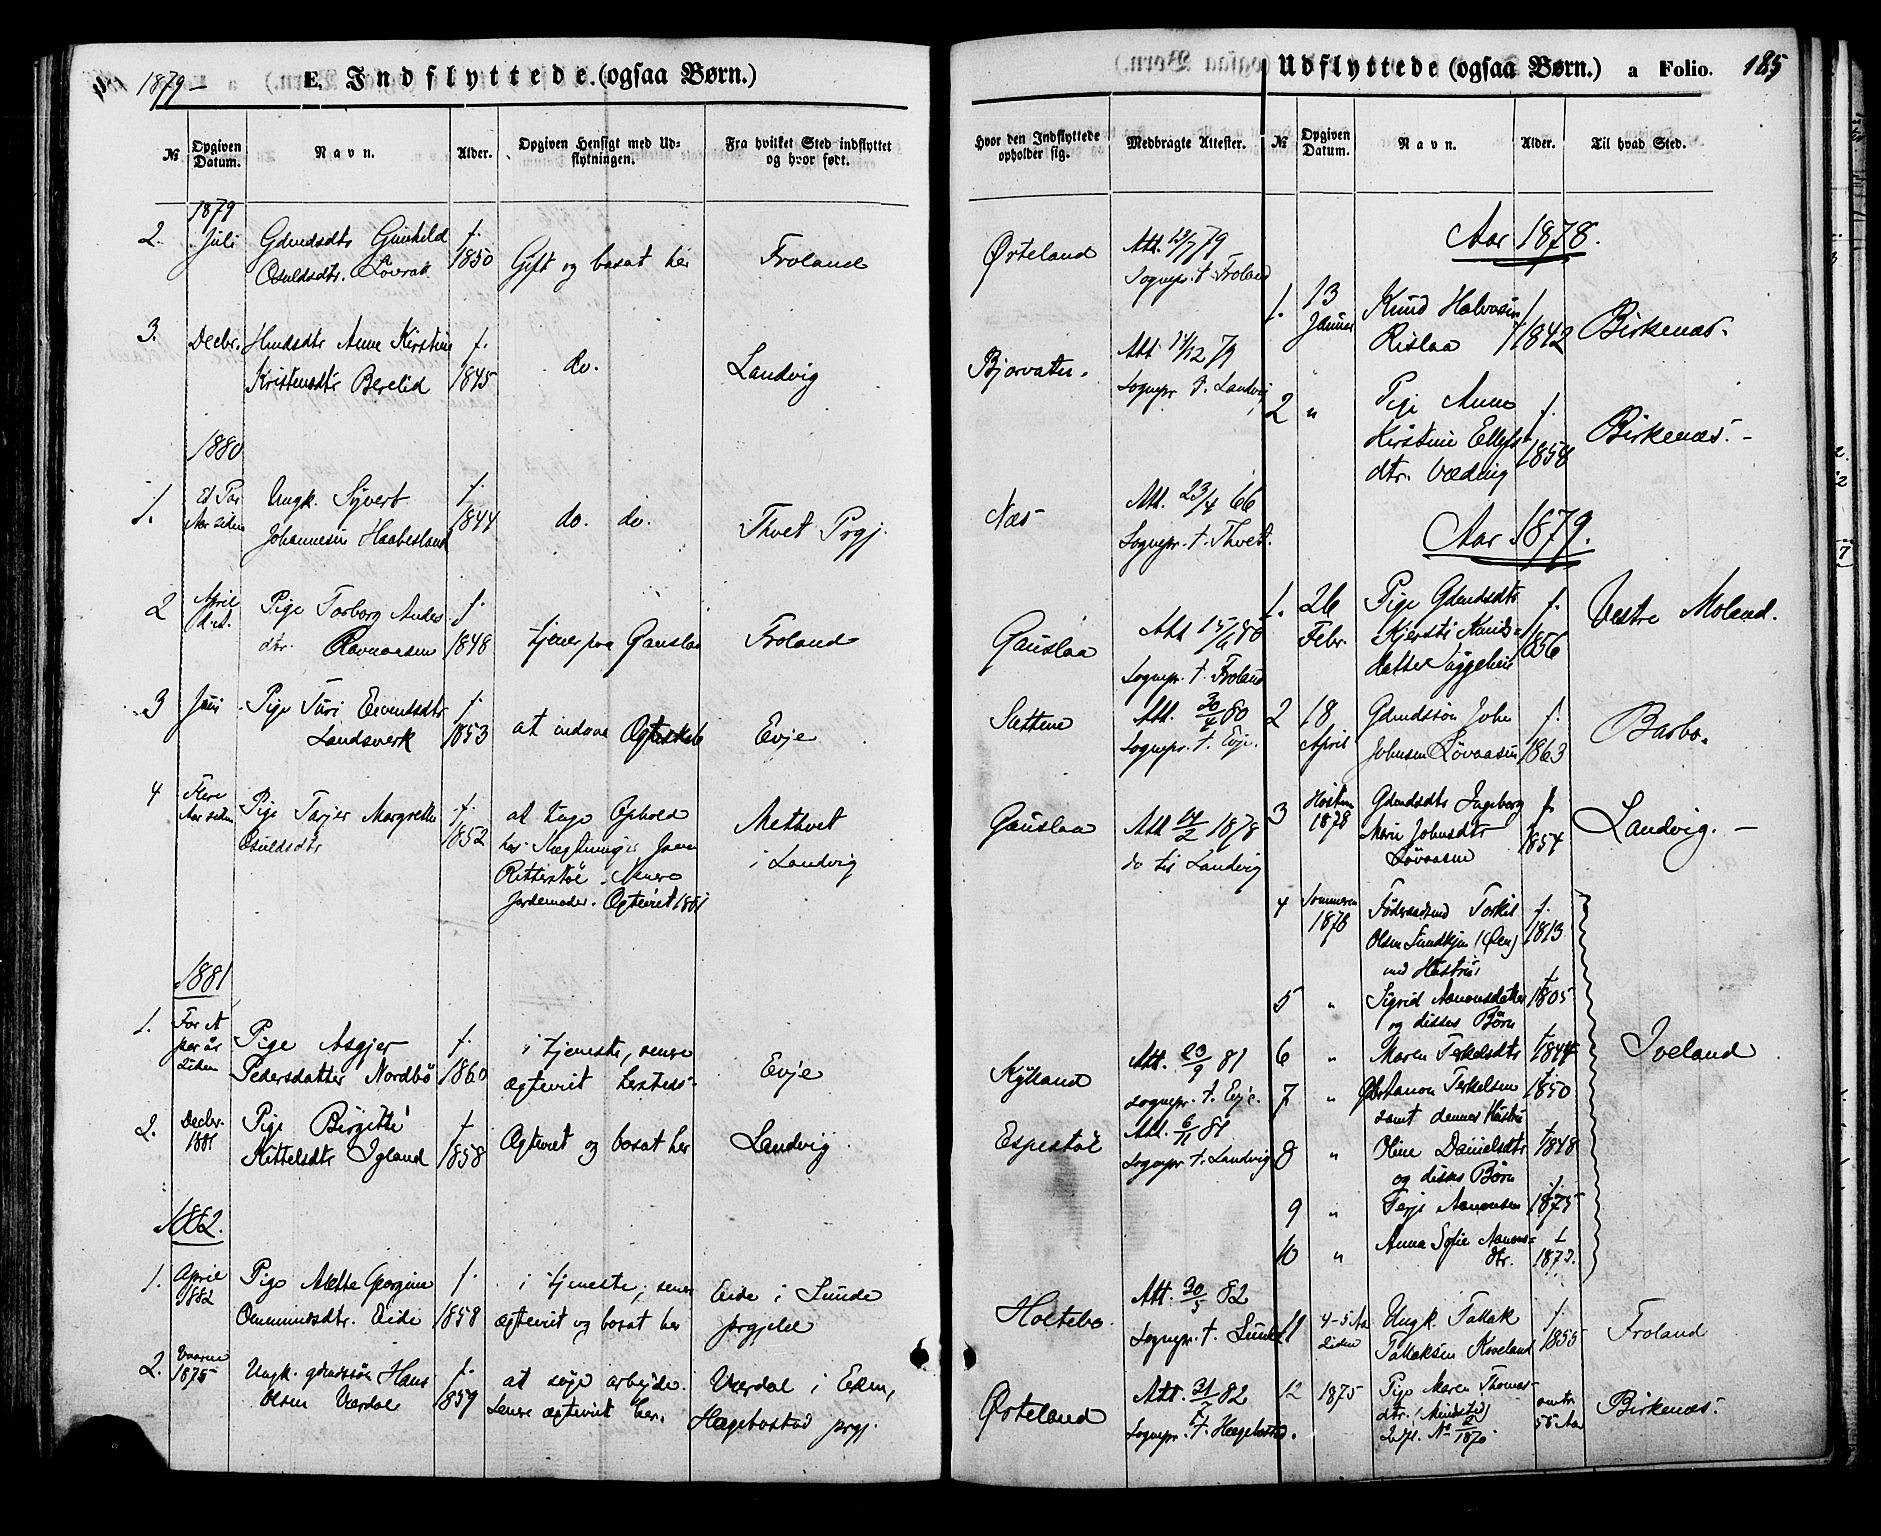 1879 –
E. Indflyttede. (ogsaa Børn.)
№ Opgiven Datum. Navn. Alder. Opgiven Hensigt med Udflytningen. Fra hvilket Sted indflyttet og hvor født.
1879
2. Juli Gdmdsdtr Gunhild f.
Osuldsdtr. 1850 Gift og bosat her Froland
3. Decbr. Anne Kirstine f.
Kristensdtr Berelid 1845 do. Landvig
1880
1. et Par Ungk. Syvert f.
Aar siden Johannesen Haabesland 1844 do. do. Thvet Prgj.
2 April Pige Torborg Anders f.
dtr. Ravnaasen 1848 tjener paa Gauslaa Froland
3 Juni Pige Turi Eivindsdtr f.
Landsverk 1853 at indgaa Egteskab Evje
4 Flere Pige Tarjer Margrethe f.
Aar siden Osuldsdtr 1852 at tage Ophold Methvet
her. i Landvig
Ritterstøl.
Jordemoder. Egteviet 1881
1881
1. For et Pige Asgjer f. i tjeneste, senere
par år siden Pedersdatter Nordbö 1860 ægteviet hersteds Evje
2. Decbr. Pige Birgitte f.
1881 Kittelsdtr Igland 1858 Egteviet og bosat her Landvig
1882.
1. April Pige Aletta Georgine f. i tjeneste, senere Eide i Lunde
1882 Ommundsdtr. Eide 1858 ægteviet og bosat her prgjeld
2. Vaaren Ungk. gdmdssön Hans f. at søge arbejde. Værdal i Eken,
1875 Olsen Værdal 1859 Senere ægteviet her. Hægebostad prgj.
Udflyttede (ogsaa Børn.) a Folio. 185
Hvor den Indflyttede opholder sig. Medbragte Attester. № Opgiven Datum. Navn. Alder. Til hvad Sted.
Ørteland Att. 29/7 79
Sognepr. t. Froland
Bjorvatn. Att. 11/12 79
Sognepr t. Landvig
Næs Att. 23/4 66
Sognepr. t. Thvet.
Gauslaa Att 15/11 80
Sognepr. t. Froland
Sattene Att. 30/4 80
Sognepr. t. Evje.
Gauslaa Att 14/2 1878
do til Landvig
Kylland Att. 20/9 81
Sognepr. t. Evje.
Espestöl Att. 6/11 81
Sognepr. t. Landvig
Holtebo. Att. 30/5 82
Sognepr. t. Lunde
Ørteland Att. 31/7 82
Sognepr. t. Hægebostad.
Aar 1878.
1. 13 Knud Halvorsen f.
Januar Rislaa 1842 Birkenæs.
2 " Pige Anne f.
Kirstine Ellefs 1858 Birkenæs. –
dtr.
Aar 1879.
1. 26 Pige Gdmdsdtr f. Vestre Moland.
Febr. Kjersti Knuds- 1856
datter
2 18 Gdmdssön John f.
April Johnsen Løvaasen 1863 Barbo.
3 Høsten Gdmdsdtr Ingeborg f.
1878 Marie Johnsdtr 1854 Landvig. –
Løvaasen
4 Sommeren Føderaadsmd Torkil f.
1878 Olsen 1813
med Hustru
5 " Sigrid Aanonsdatter f 1805
og disses Börn
6 " Maren Terkelsdtr f 1844 Iveland
7 " Aanon Terkelsen f 1850
samt dennes Hustru
8 " Oline Danielsdtr f 1848
og disses Börn
9 " Terje Aanonsen f. 1875
10 " Anna Sofie Aanons- f
dtr. 1873.
11 4-5 Aar Ungk. Tallak f.
siden Tallaksen Koveland 1855 Froland
12 1875 Pige Maren Thomas- omtr.
dtr. 55 Aar Birkenæs.
№ 2/1870